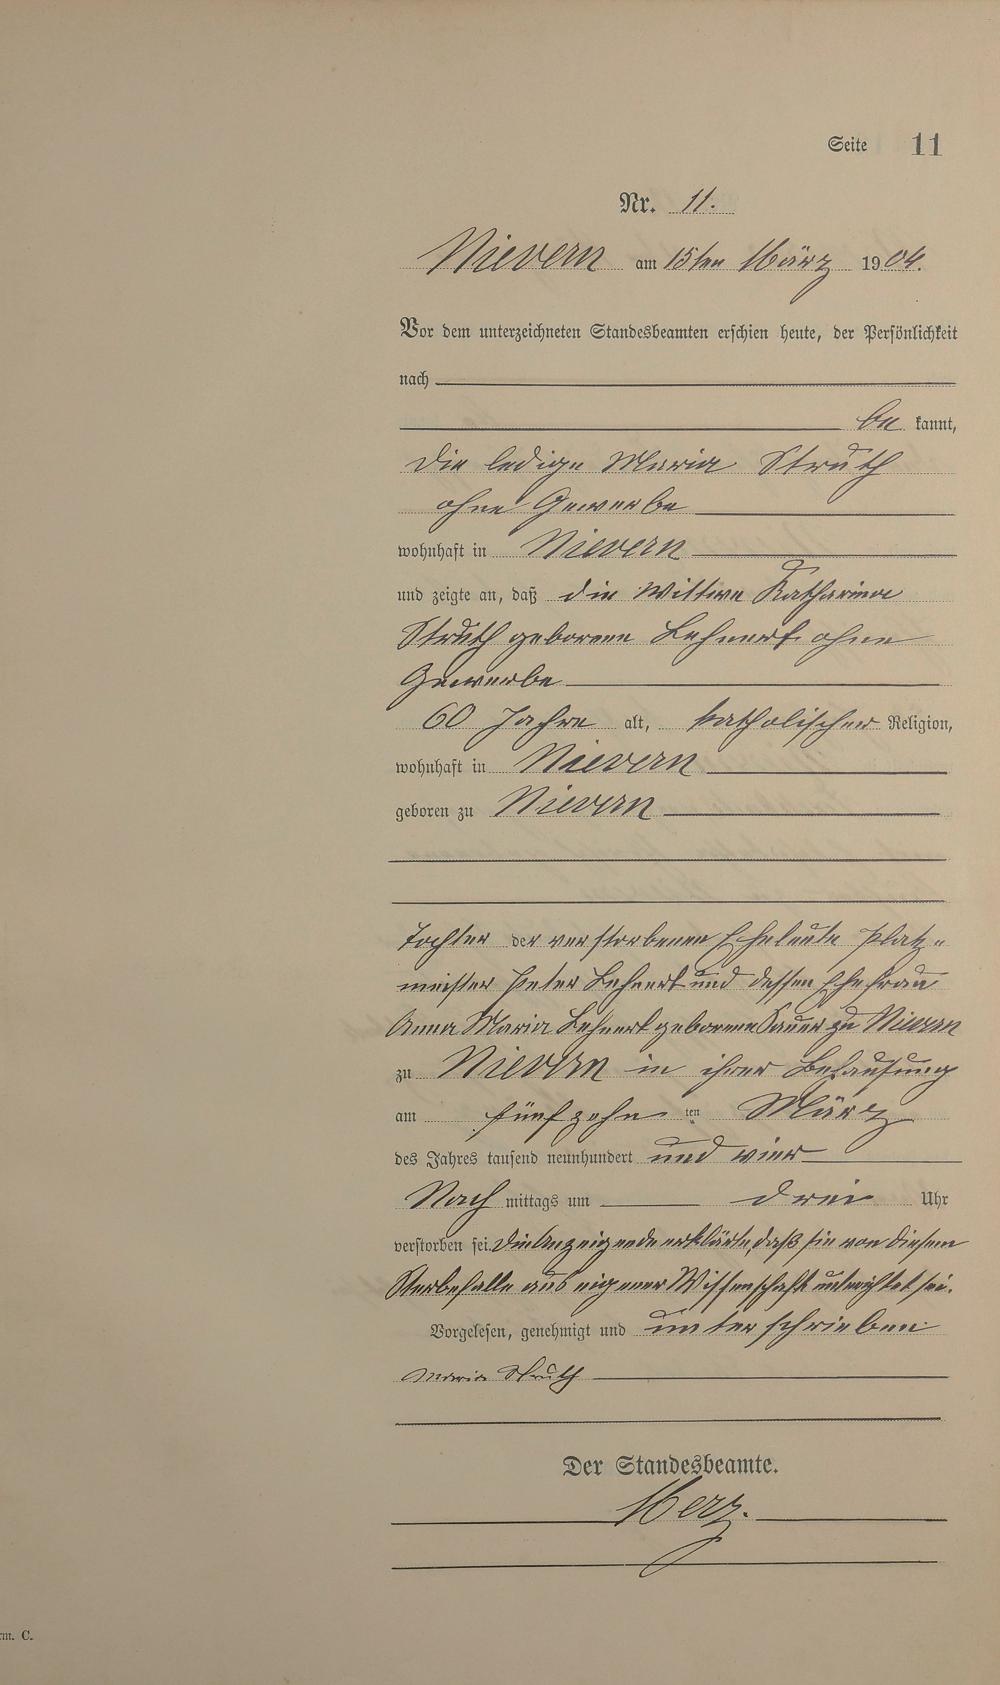 Seite 11
Nr. 11.
Nievern am 15ten März 1904.
Vor dem unterzeichneten Standesbeamten erschien heute, der Persönlichkeit
nach
be kannt,
die ledige Maria Struth
ohne Gewerbe
wohnhaft in Nievern
und zeigte an, daß die Wittwe Katharina
Struth geborene Lehnert ohne
Gewerbe
60 Jahre alt, katholischer Religion,
wohnhaft in Nievern
geboren zu Nievern
Tochter der verstorbenen Eheleute Platz-
meister Peter Lehnert und dessen Ehefrau
Anna Maria Lehnert geborene Sauer zu Nievern
zu Nievern in ihrer Behausung
am fünfzehn ten März
des Jahres tausend neunhundert und vier
Nach mittags um drei Uhr
verstorben sei. Die Anzeigende erklärte, daß sie von diesem
Sterbefalle aus eigener Wissenschaft unterrichtet sei.
Vorgelesen, genehmigt und unterschrieben
Maria Struth
Der Standesbeamte.
Merz.
rm. C.